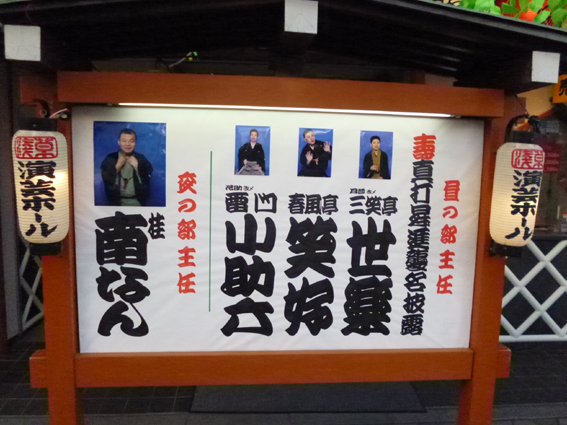 昼の部主任
寿真打昇進襲名披露
月夢改メ
三笑亭
世楽
春風亭
笑好
花助改メ
雷門
小助六
夜の部主任
桂
南なん
浅草
演芸ホール
浅草
演芸ホール